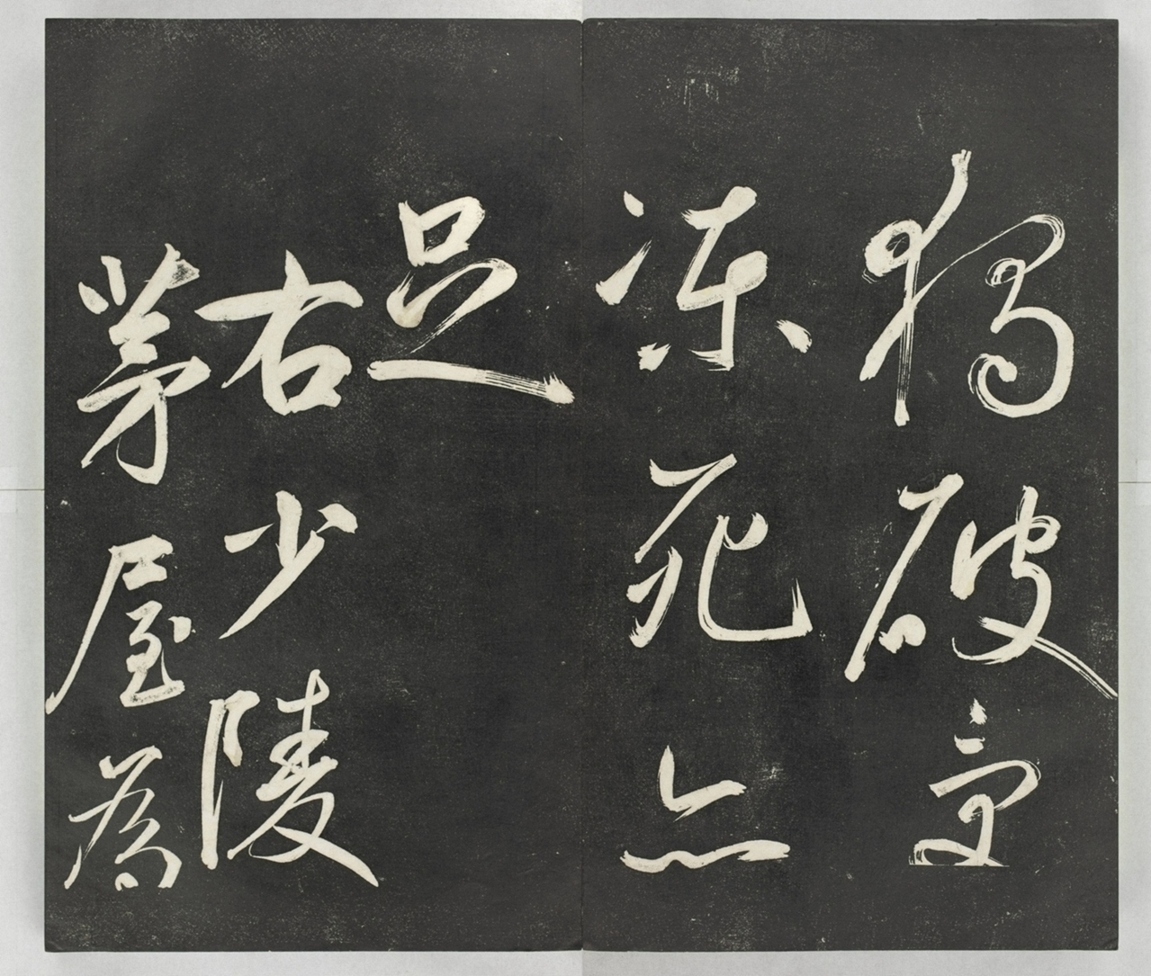 獨破受
凍死亦
足
右少陵
茅屋為